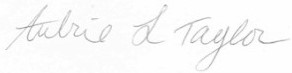 Aubrie L Taylor